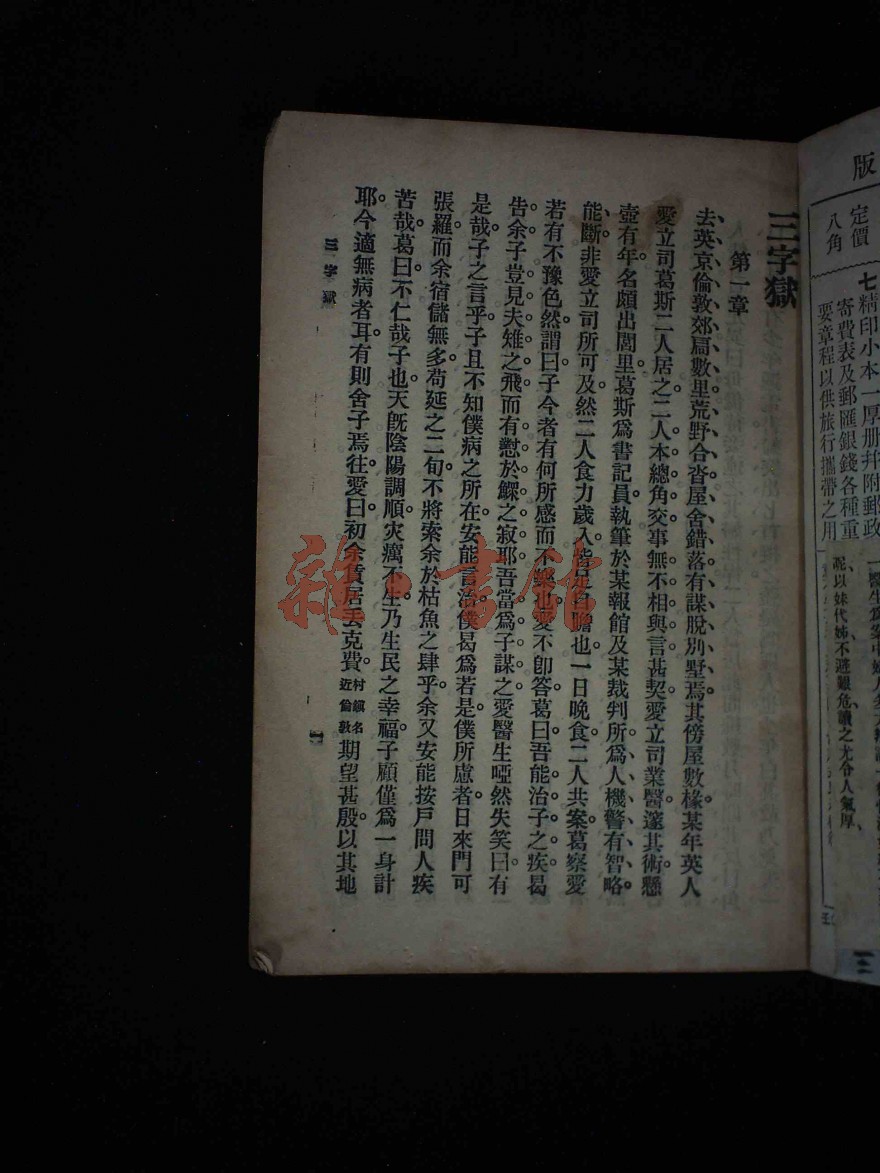 版
定價
八角
七精印小本一厚册幷附郵政
寄費表及郵匯銀錢各種重
要章程以供旅行攜帶之用
泥以妹代姊不避艱危讀之尤令人氣厚
三字獄
第一章
去英京倫敦郊扃數里荒野合沓屋舍錯落有謀脫別墅焉其傍屋數椽某年英人
愛立司葛斯二人居之二人本總角交事無不相與言甚契愛立司業醫邃其術懸
壺有年名頗出閭里葛斯爲書記員執筆於某報館及某裁判所爲人機警有智略
能斷非愛立司所可及然二人食力歲入皆足自贍也一日晚食二人共案葛察愛
若有不豫色然謂曰子今者有何所感而不樂也愛不卽答葛曰吾能治子之疾曷
告余子豈見夫雉之飛而有懟於鰥之寂耶吾當爲子謀之愛醫生啞然失笑曰有
是哉子之言乎子且不知僕病之所在安能言治僕曷爲若是僕所慮者日來門可
張羅而余宿儲無多苟延之二旬不將索余於枯魚之肆乎余又安能按戶問人疾
苦哉葛曰不仁哉子也天旣陰陽調順灾癘不生乃生民之幸福子顧僅爲一身計
耶今適無病者耳有則舍子焉往愛曰初余賃居丢克費村鎭名近倫敦期望甚殷以其地
三字獄
一
雜·書館